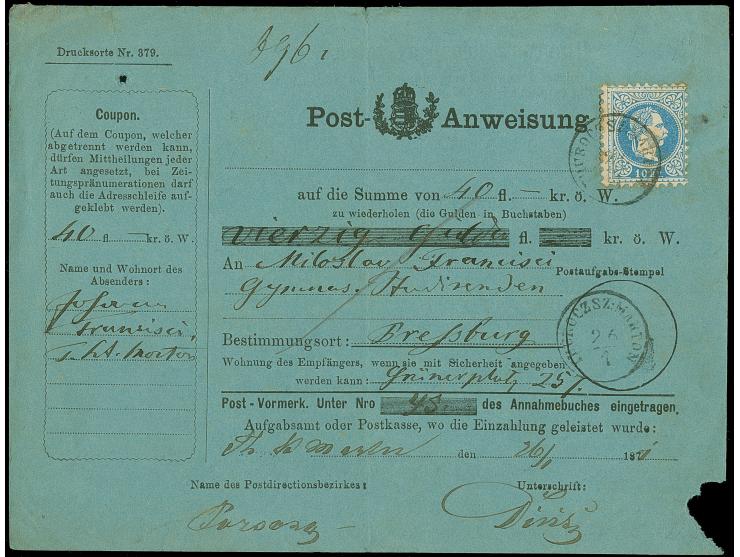 Drucksorte Nr. 379.
Post-Anweisung
10
Coupon.
(Auf dem Coupon, welcher
abgetrennt werden kann,
dürfen Mittheilungen jeder
Art angesetzt, bei Zei-
tungspränumerationen darf
auch die Adresschleife auf-
geklebt werden).
40 fl — kr. ö. W.
Name und Wohnort des
Absenders:
Johann
Francisci
auf die Summe von 40 fl. — kr. ö. W.
zu wiederholen (die Gulden in Buchstaben)
vierzig fl. kr. ö. W.
An Miloslav Francisci
Postaufgabs-Stempel
Gymnas. Studirenden
TURÓCZ SZ: MÁRTON
26
1
Bestimmungsort: Preßburg
Wohnung des Empfängers, wenn sie mit Sicherheit angegeben
werden kann: Grünerplatz 257.
Post-Vormerk. Unter Nro 48. des Annahmebuches eingetragen.
Aufgabsamt oder Postkasse, wo die Einzahlung geleistet wurde:
den 26/1 187
Name des Postdirectionsbezirkes:
Unterschrift: